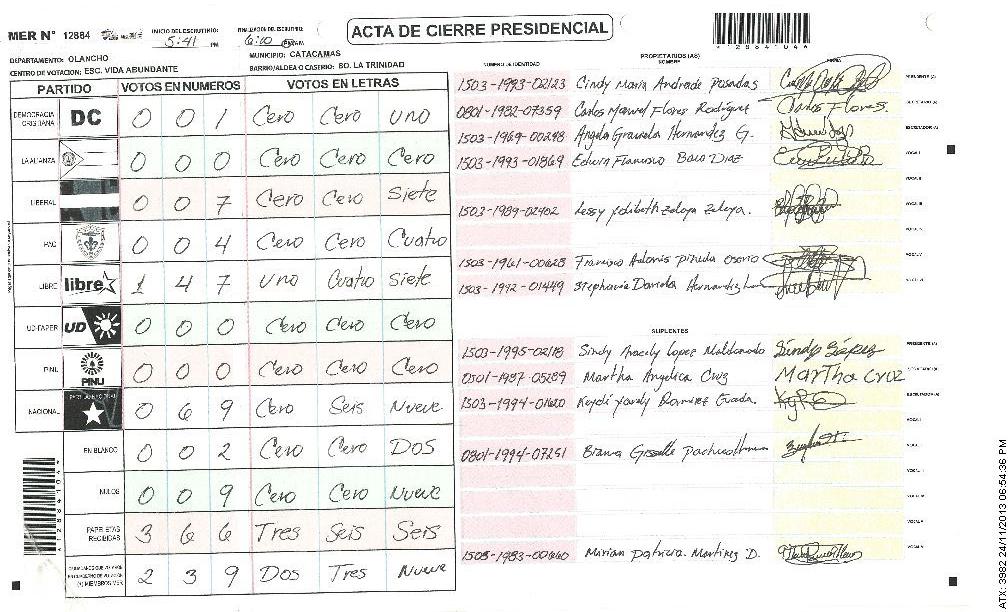 ACTA DE CIERRE PRESIDENCIAL
MER N° 12884
INICIO DEL ESCRUTINIO: 5:41 PM
FINALIZACION DEL ESCRUTINIO: 6:10 PM
DEPARTAMENTO: OLANCHO
MUNICIPIO: CATACAMAS
CENTRO DE VOTACION: ESC. VIDA ABUNDANTE
BARRIO/ALDEA O CASERIO: BO. LA TRINIDAD
PARTIDO VOTOS EN NUMEROS VOTOS EN LETRAS
DEMOCRACIA CRISTIANA DC 0 0 1 Cero Cero uno
LA ALIANZA 0 0 0 Cero Cero Cero
LIBERAL 0 0 7 Cero Cero Siete
PAC 0 0 4 Cero Cero Cuatro
LIBRE libre 1 4 7 uno Cuatro Siete
UD-FAPER UD 0 0 0 Cero Cero Cero
PINU PINU 0 0 0 Cero Cero Cero
NACIONAL PARTIDO NACIONAL 0 6 9 Cero Seis Nueve
EN BLANCO 0 0 2 Cero Cero DOS
NULOS 0 0 9 Cero Cero Nueve
PAPELETAS RECIBIDAS 3 6 6 Tres Seis Seis
2 3 9 Dos Tres Nueve
NUMERO DE IDENTIDAD PROPIETARIOS (AS) NOMBRE FIRMA
1503-1993-02123 Cindy Maria Andrade Posadas PRESIDENTE (A)
0801-1982-07359 Carlos Manuel Flores Rodriguez Carlos Flores. SECRETARIO (A)
1503-1969-00298 Angela Graciela Hernandez G. ESCRUTADOR (A)
1503-1993-01869 Edwin Francisco Diaz VOCAL I
1503-1989-02402 Lessy Zelaya Zelaya.
1503-1961-00628 Francisco Adonis Pineda Osorio
1503-1992-01449 Stephanie Daniela Hernandez
SUPLENTES
1503-1995-02118 Sindy Aracely Lopez Maldonado Sindy López PRESIDENTE (A)
0501-1987-05289 Martha Angelica Cruz MarTha Cruz SECRETARIO (A)
1503-1994-01620 Keydi Ramirez ESCRUTADOR (A)
0801-1994-07251 Biania Gisselle
1503-1983-00660 Mirian Patricia Martinez D.
12884104
ATX: 3982 24/11/2013 06:54:36 PM